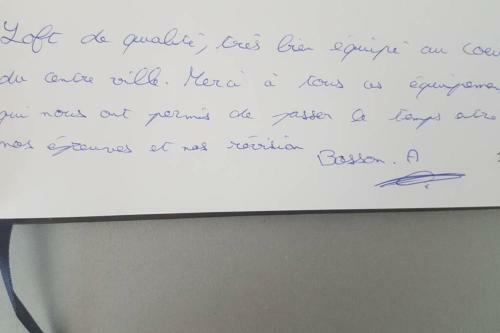 Loft de qualité, très bien équipé au coeu
du centre ville. Merci à tous ces équipemen
qui nous ont permis de passer le temps entre
nos épreuves et nos révision
Bosson. A